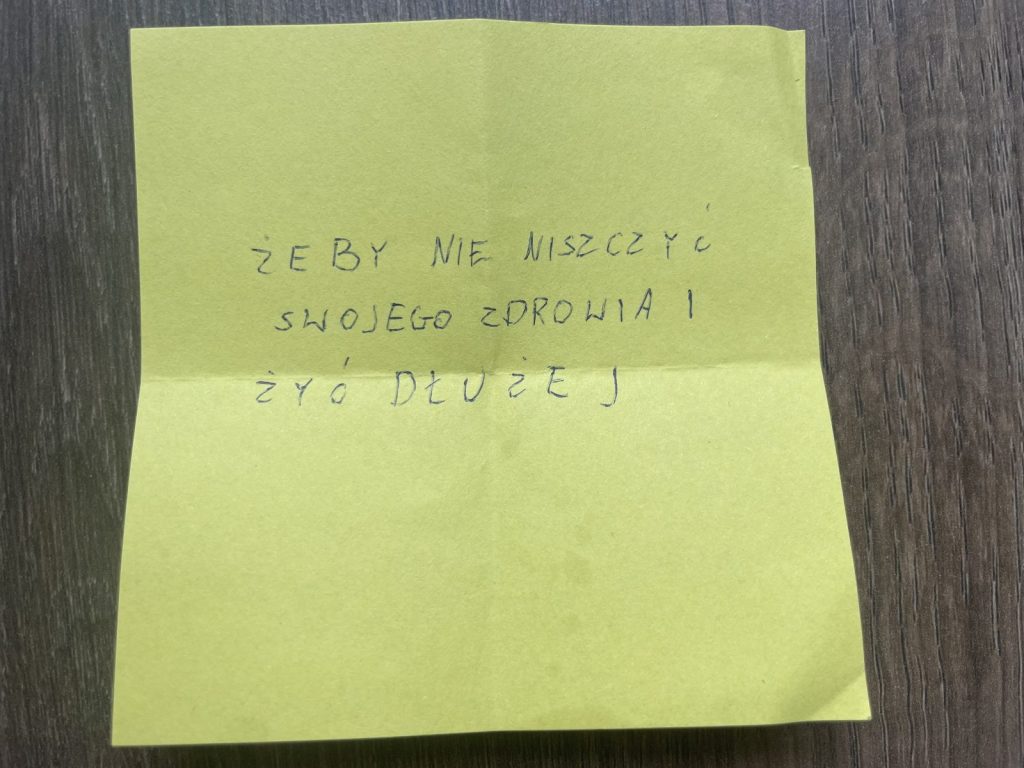 ŻEBY NIE NISZCZYĆ
SWOJEGO ZDROWIA I
ŻYĆ DŁUŻEJ